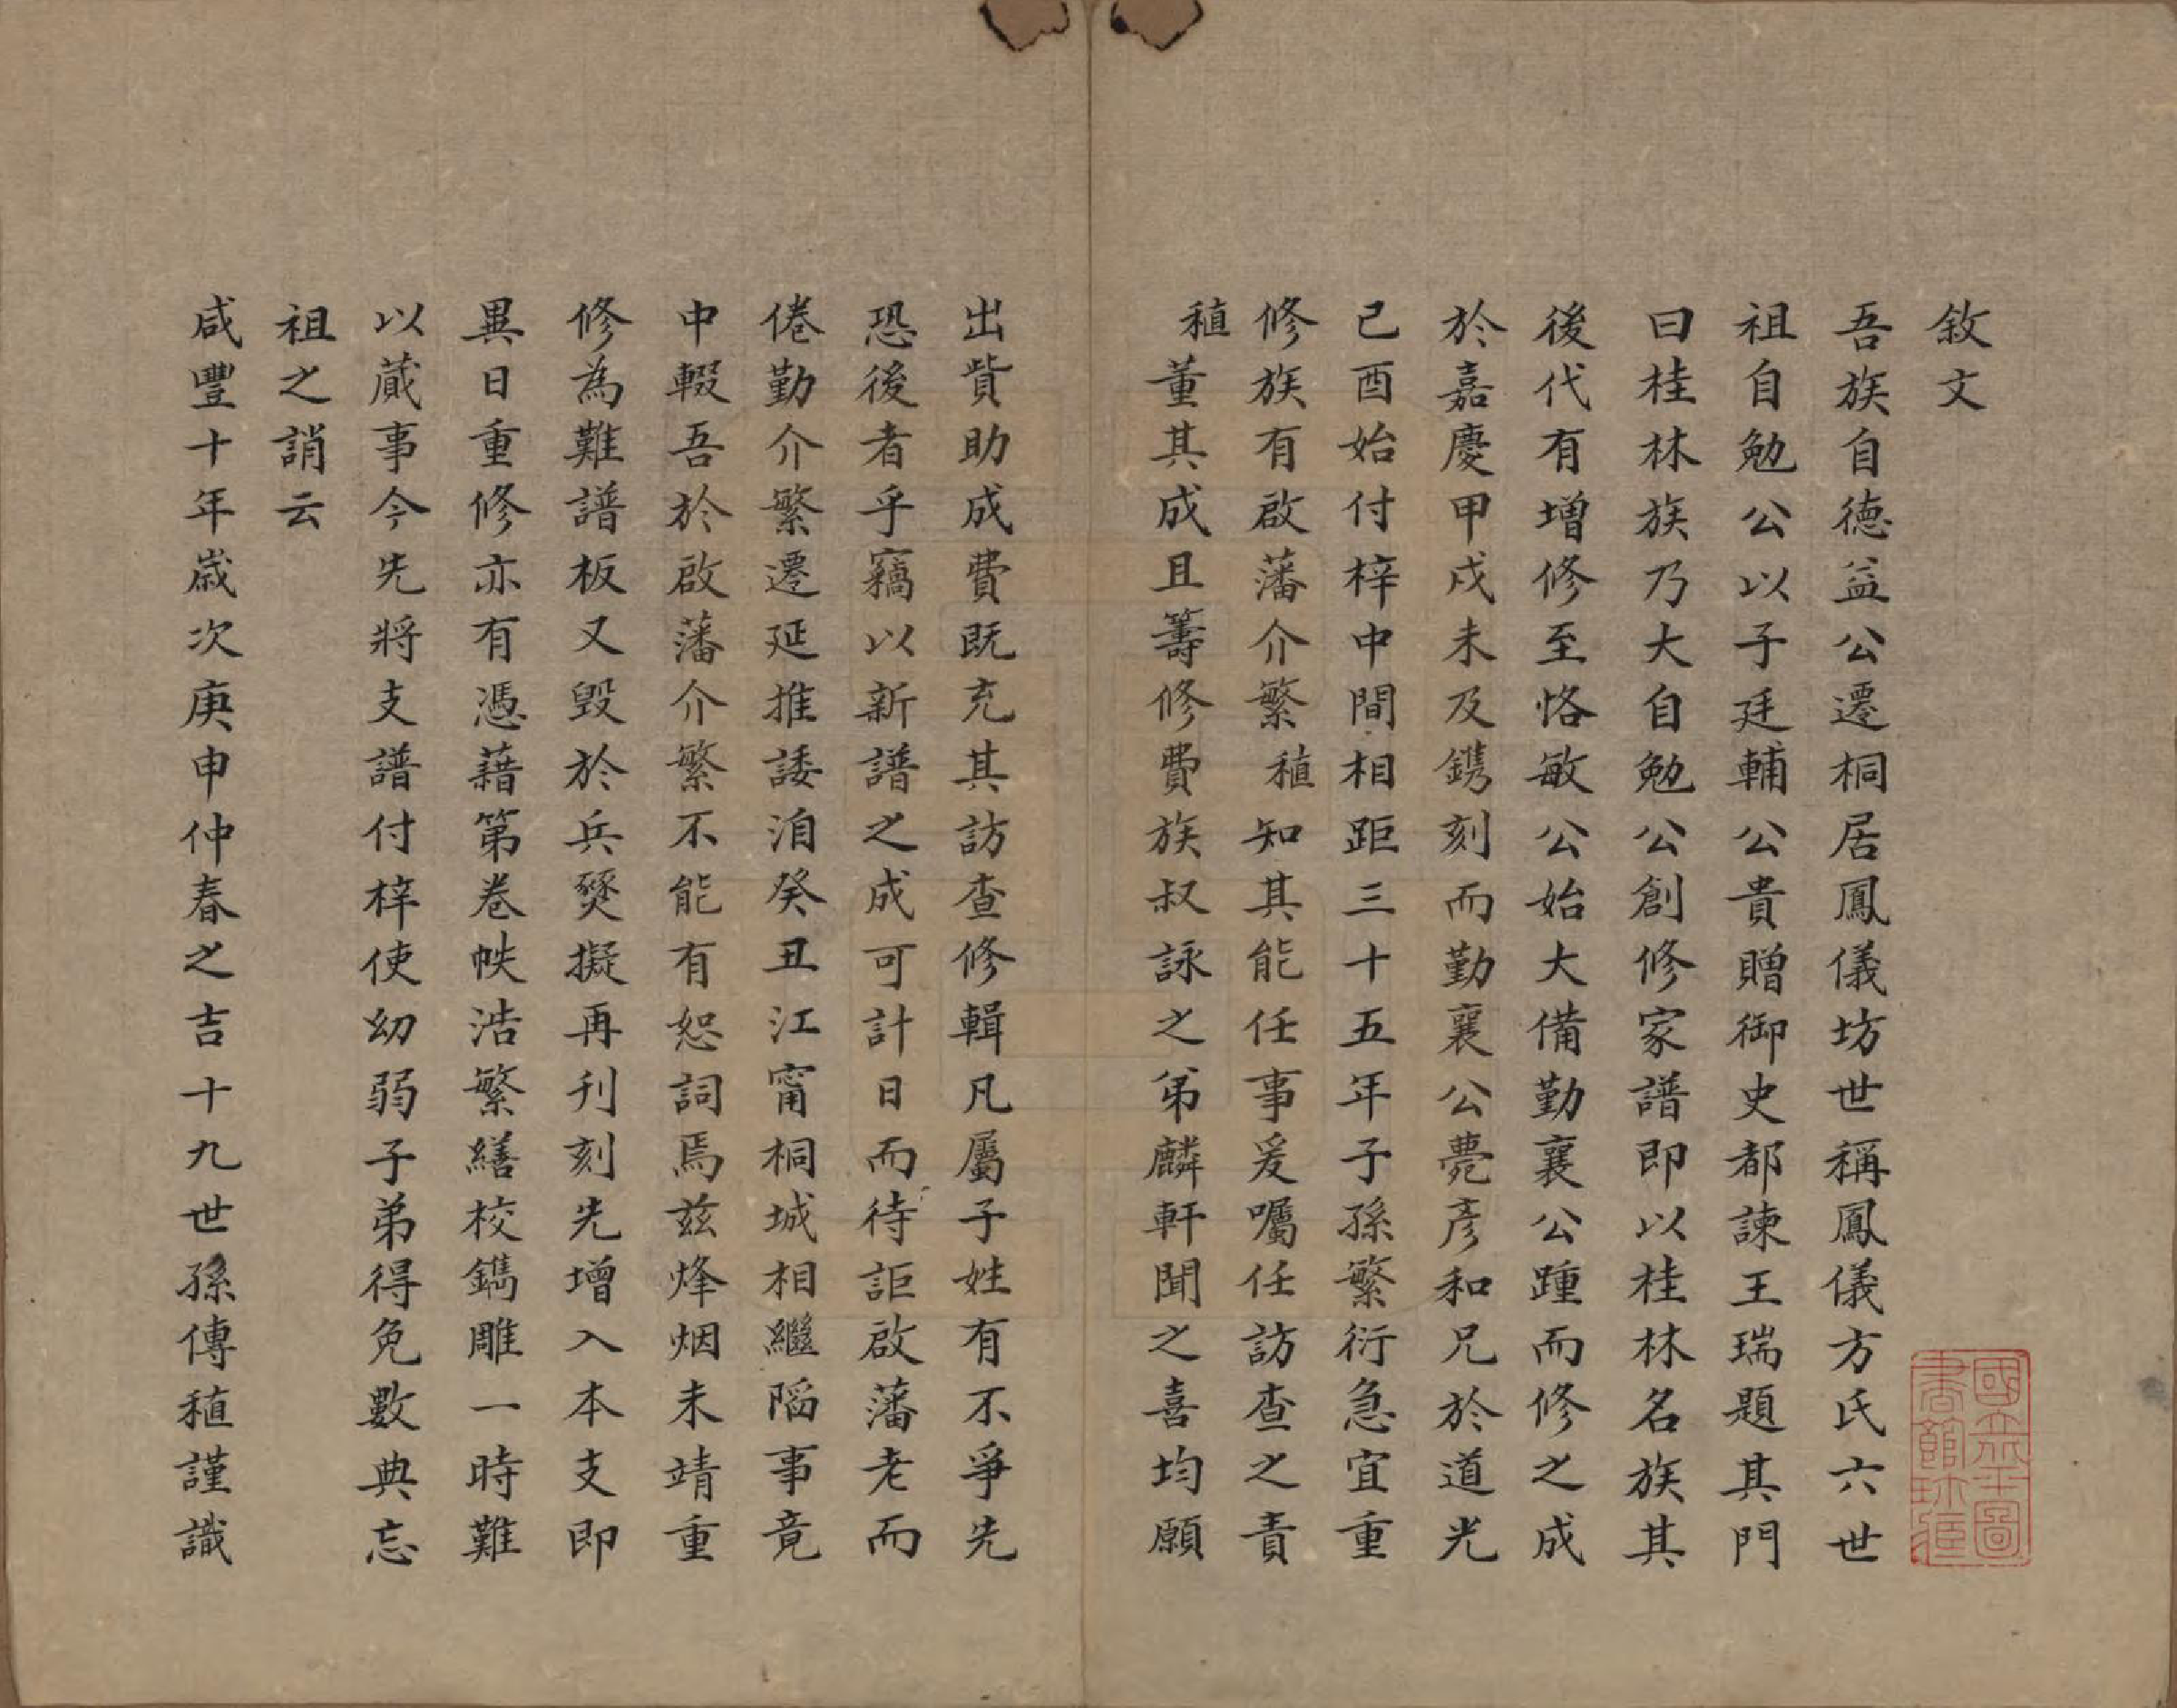 敘文
吾族自德益公遷桐居鳳儀坊世稱鳳儀方氏六世
祖自勉公以子廷輔公貴贈御史都諫王瑞題其門
曰桂林族乃大自勉公創修家譜即以桂林名族其
後代有增修至恪敏公始大備勤襄公踵而修之成
於嘉慶甲戌未及鐫刻而勤襄公薨彥和兄於道光
己酉始付梓中間相距三十五年子孫繁衍急宜重
修族有啟藩介繁稙知其能任事爰囑任訪查之責
稙董其成且籌修費族叔詠之弟麟軒聞之喜均願
出貲助成費既充其訪查修輯凡屬子姓有不爭先
恐後者乎竊以新譜之成可計日而待詎啟藩老而
倦勤介繁遷延推諉洎癸丑江甯桐城相繼陷事竟
中輟吾於啟藩介繁不能有恕詞焉茲烽烟未靖重
修為難譜板又毀於兵燹擬再刊刻先增入本支即
異日重修亦有憑藉第卷帙浩繁繕校鐫雕一時難
以蕆事今先將支譜付梓使幼弱子弟得免數典忘
祖之誚云
咸豐十年歲次庚申仲春之吉十九世孫傳稙謹識
國立中央圖書館珍藏